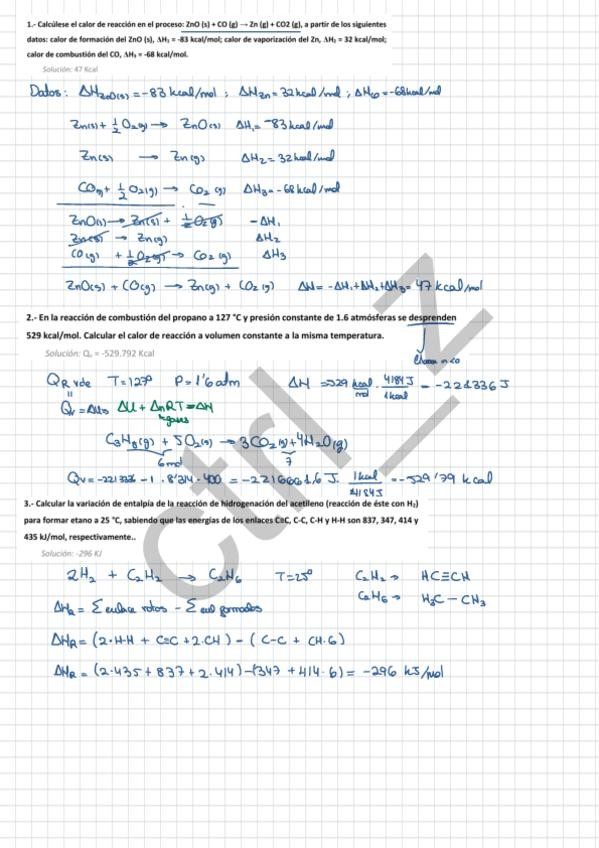 1.- Calcúlese el calor de reacción en el proceso: ZnO (s) + CO (g) → Zn (g) + CO2 (g), a partir de los siguientes
datos: calor de formación del ZnO (s), ΔH₁ = -83 kcal/mol; calor de vaporización del Zn, ΔH₂ = 32 kcal/mol;
calor de combustión del CO, ΔH₃ = -68 kcal/mol.
Solución: 47 Kcal
Datos: ΔH ZnO(s) = -83 kcal/mol ; ΔH Zn = 32 kcal/mol ; ΔH CO = -68 kcal/mol
Zn(s) + 1/2 O₂(g) → ZnO(s) ΔH₁ = -83 kcal/mol
Zn(s) → Zn(g) ΔH₂ = 32 kcal/mol
CO(g) + 1/2 O₂(g) → CO₂(g) ΔH₃ = -68 kcal/mol
ZnO(s) → Zn(s) + 1/2 O₂(g) -ΔH₁
Zn(s) → Zn(g) ΔH₂
CO(g) + 1/2 O₂(g) → CO₂(g) ΔH₃
ZnO(s) + CO(g) → Zn(g) + CO₂(g) ΔH = -ΔH₁ + ΔH₂ + ΔH₃ = 47 kcal/mol
2.- En la reacción de combustión del propano a 127 °C y presión constante de 1.6 atmósferas se desprenden
529 kcal/mol. Calcular el calor de reacción a volumen constante a la misma temperatura.
Solución: Qᵥ = -529.792 Kcal
QR v de T = 127° P = 1'6 atm ΔH = 529 kcal/mol · 4184 J/1 kcal = -2213336 J
Qv = ΔU => ΔU + ΔnRT = ΔH
gases
C₃H₈(g) + 5O₂(g) → 3CO₂(g) + 4H₂O(g)
6 mol 7
Qv = -2213336 - 1 · 8'314 · 400 = -2216661'6 J · 1 kcal/4184 J = -529'79 kcal
3.- Calcular la variación de entalpía de la reacción de hidrogenación del acetileno (reacción de éste con H₂)
para formar etano a 25 °C, sabiendo que las energías de los enlaces C≡C, C-C, C-H y H-H son 837, 347, 414 y
435 kJ/mol, respectivamente..
Solución: -296 KJ
2H₂ + C₂H₂ → C₂H₆ T = 25° C₂H₂ → HC≡CH
C₂H₆ → H₃C - CH₃
ΔHR = Σ enlace rotos - Σ enl formados
ΔHR = (2·H-H + C≡C + 2·CH) - (C-C + CH·6)
ΔHR = (2·435 + 837 + 2·414) - (347 + 414·6) = -296 kJ/mol
ctrl_z